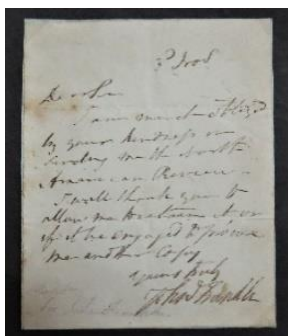 Dear Sir
I am much obliged
by your kindness in
sending me the North
American Review.
I will thank you to
allow me to retain it, or
if it be engaged to procure
me another Copy
Yours truly